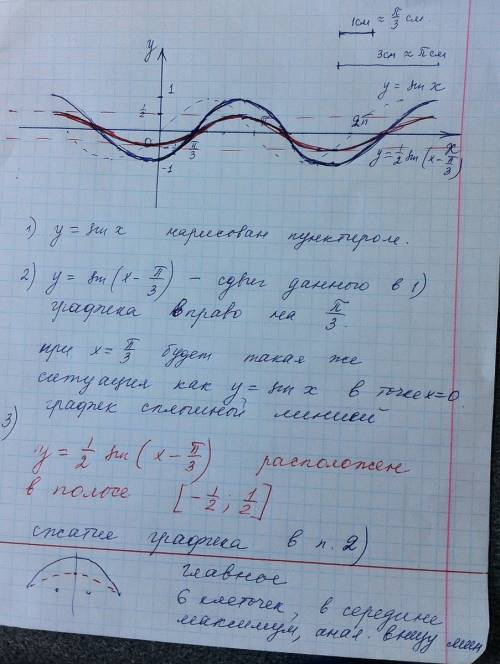 1см ≈ π/3 см.
3см ≈ π см
y
y = sin x
1
1/2
0
π/3
π
2π
x
-1
y = 1/2 sin(x - π/3)
1) y = sin x нарисован пунктиром.
2) y = sin(x - π/3) – сдвиг данного в 1)
графика вправо на π/3.
при x = π/3 будет такая же
ситуация как y = sin x в точке x=0.
график сплошной линией
3)
y = 1/2 sin(x - π/3) расположен
в полосе [-1/2; 1/2]
сжатие графика в п. 2)
главное
6 клеточек, в середине
максимум, анал. внизу мин